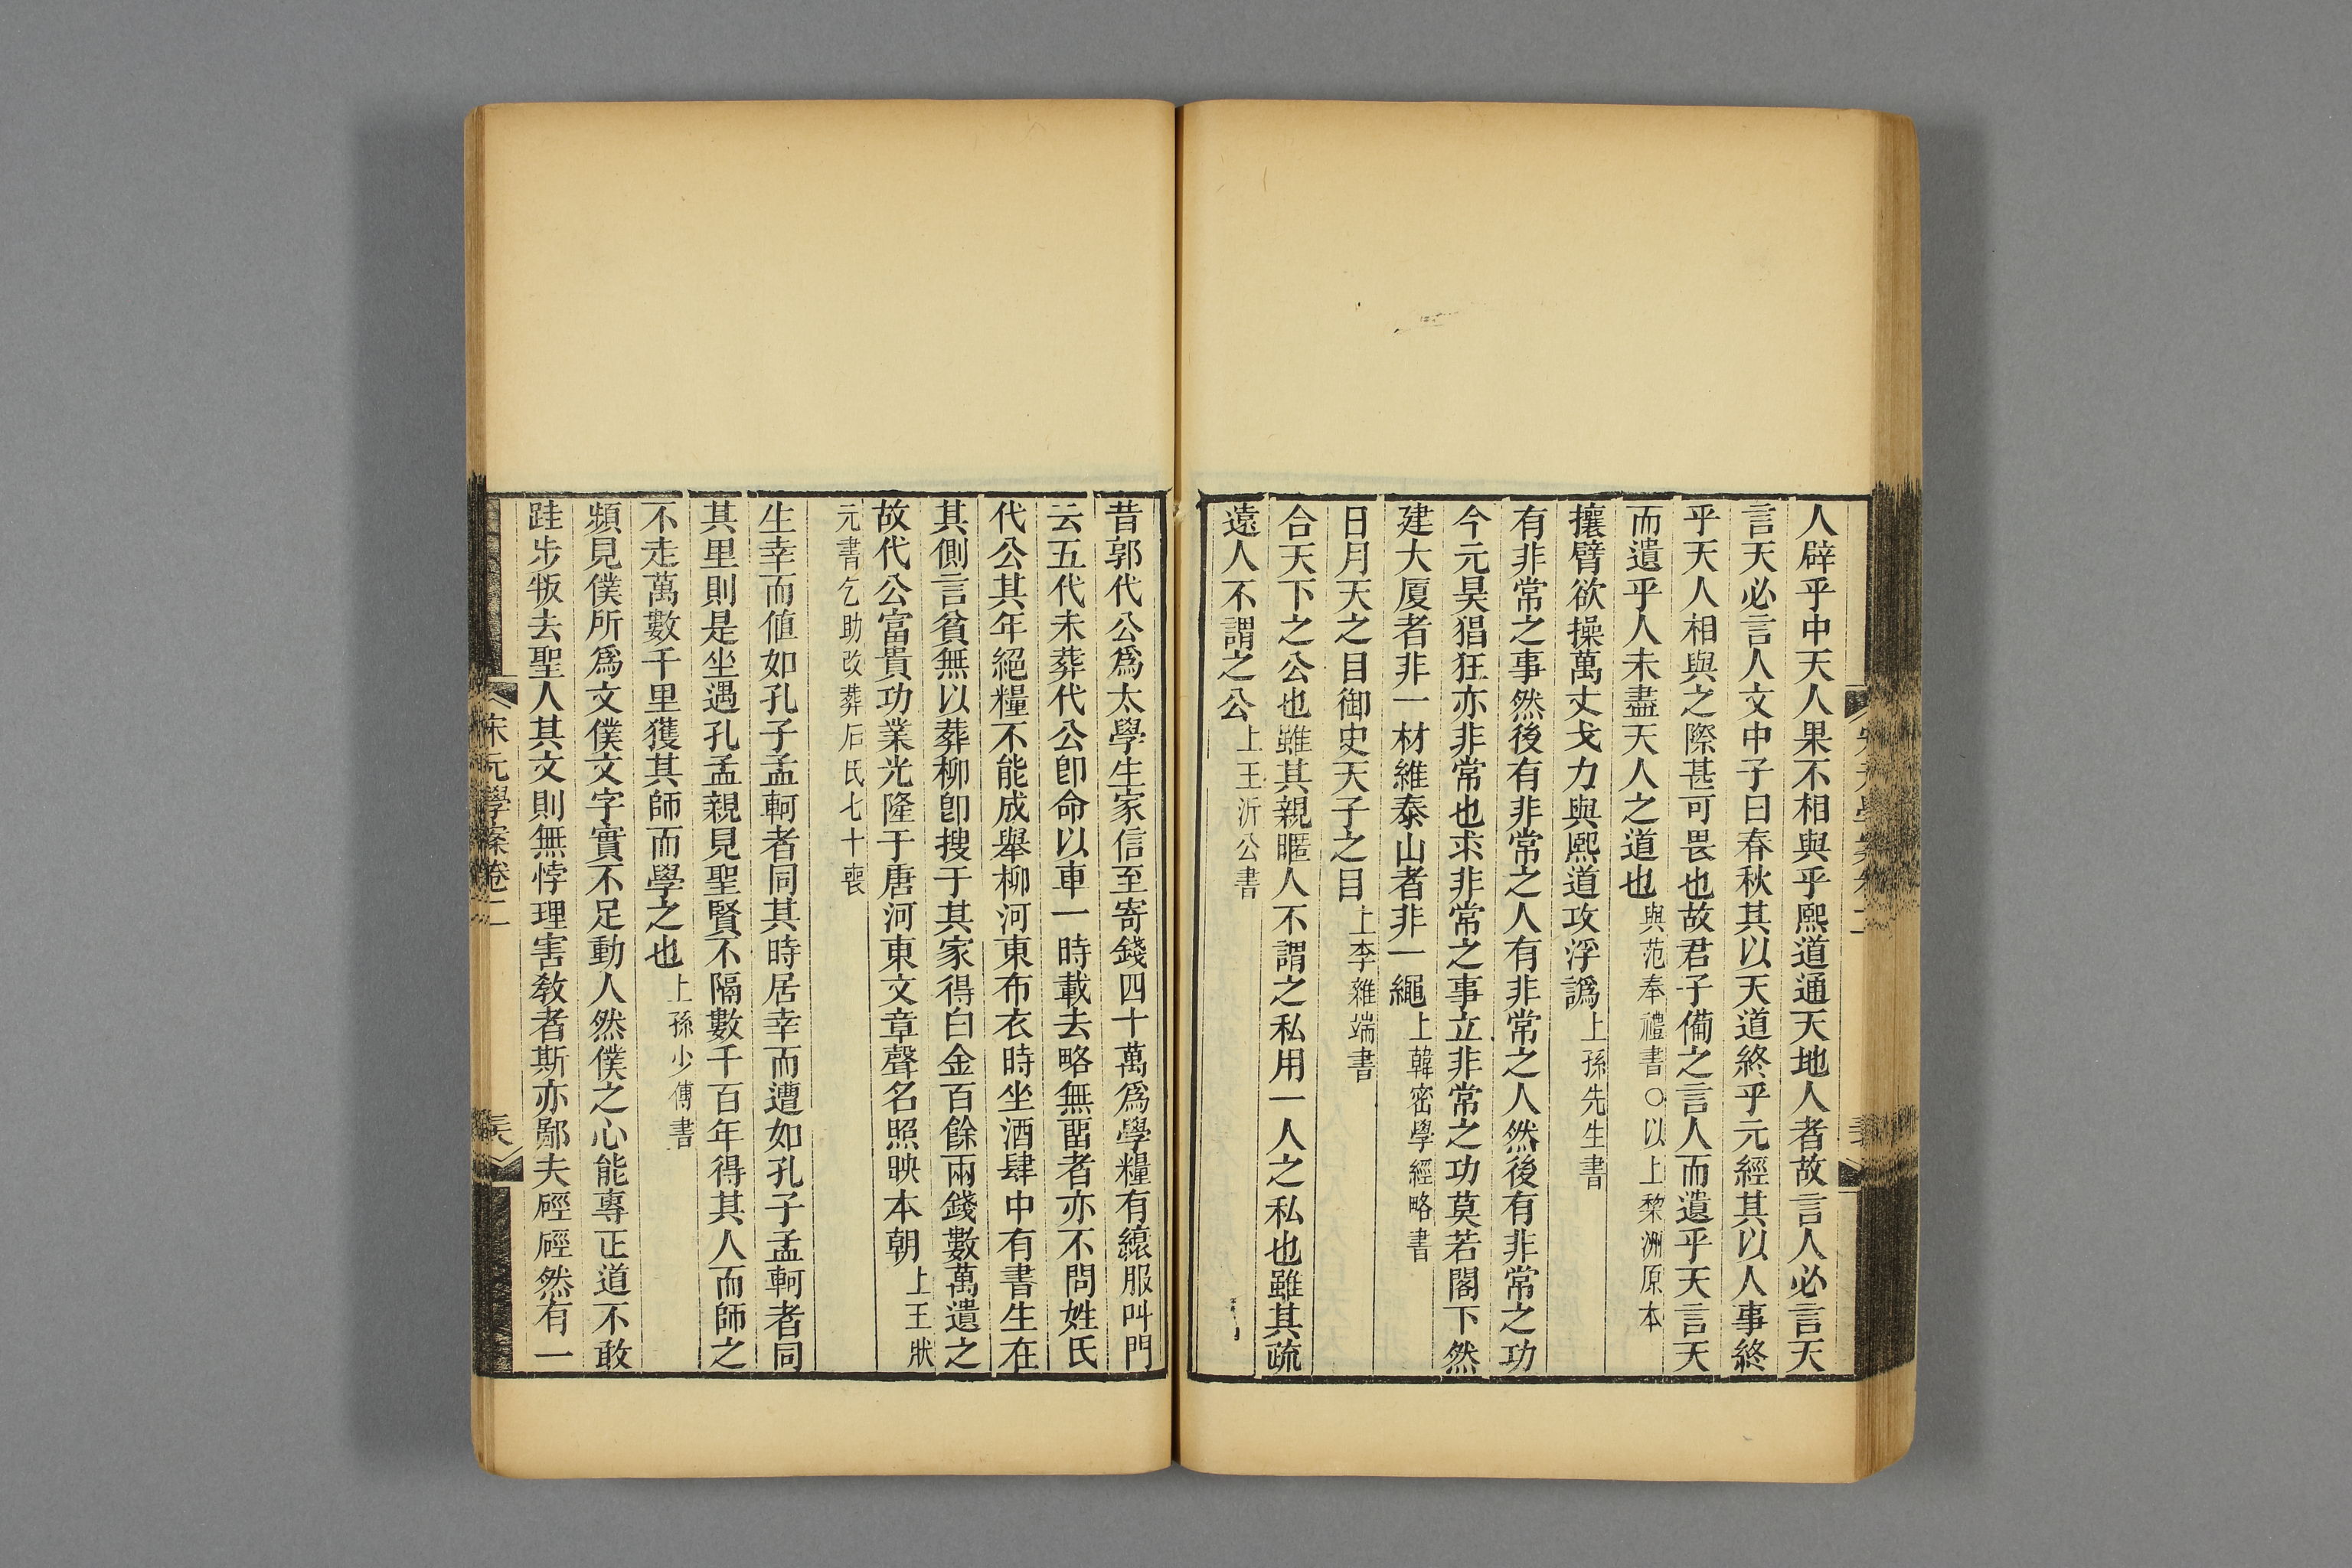 人辟乎中天人果不相與乎熙道通天地人者故言人必言天
言天必言人文中子曰春秋其以天道終乎元經其以人事終
乎天人相與之際甚可畏也故君子備之言人而遺乎天言天
而遺乎人未盡天人之道也與范奉禮書〇以上黎洲原本
攘臂欲操萬丈戈力與熙道攻浮譌上孫先生書
有非常之事然後有非常之人有非常之人然後有非常之功
今元昊猖狂亦非常也求非常之事立非常之功莫若閣下然
建大厦者非一材維泰山者非一繩上韓密學經略書
日月天之目御史天子之目上李雜端書
合天下之公也雖其親暱人不謂之私用一人之私也雖其疏
遠人不謂之公上王沂公書
昔郭代公爲太學生家信至寄錢四十萬爲學糧有縗服叫門
云五代未葬代公卽命以車一時載去略無畱者亦不問姓氏
代公其年絕糧不能成舉柳河東布衣時坐酒肆中有書生在
其側言貧無以葬柳卽搜于其家得白金百餘兩錢數萬遺之
故代公富貴功業光隆于唐河東文章聲名照映本朝上王狀
元書乞助改葬石氏七十喪
生幸而値如孔子孟軻者同其時居幸而遭如孔子孟軻者同
其里則是坐遇孔孟親見聖賢不隔數千百年得其人而師之
不走萬數千里獲其師而學之也上孫少傅書
頻見僕所爲文僕文字實不足動人然僕之心能專正道不敢
跬步叛去聖人其文則無悖理害敎者斯亦鄙夫硜硜然有一
宋元學案卷二